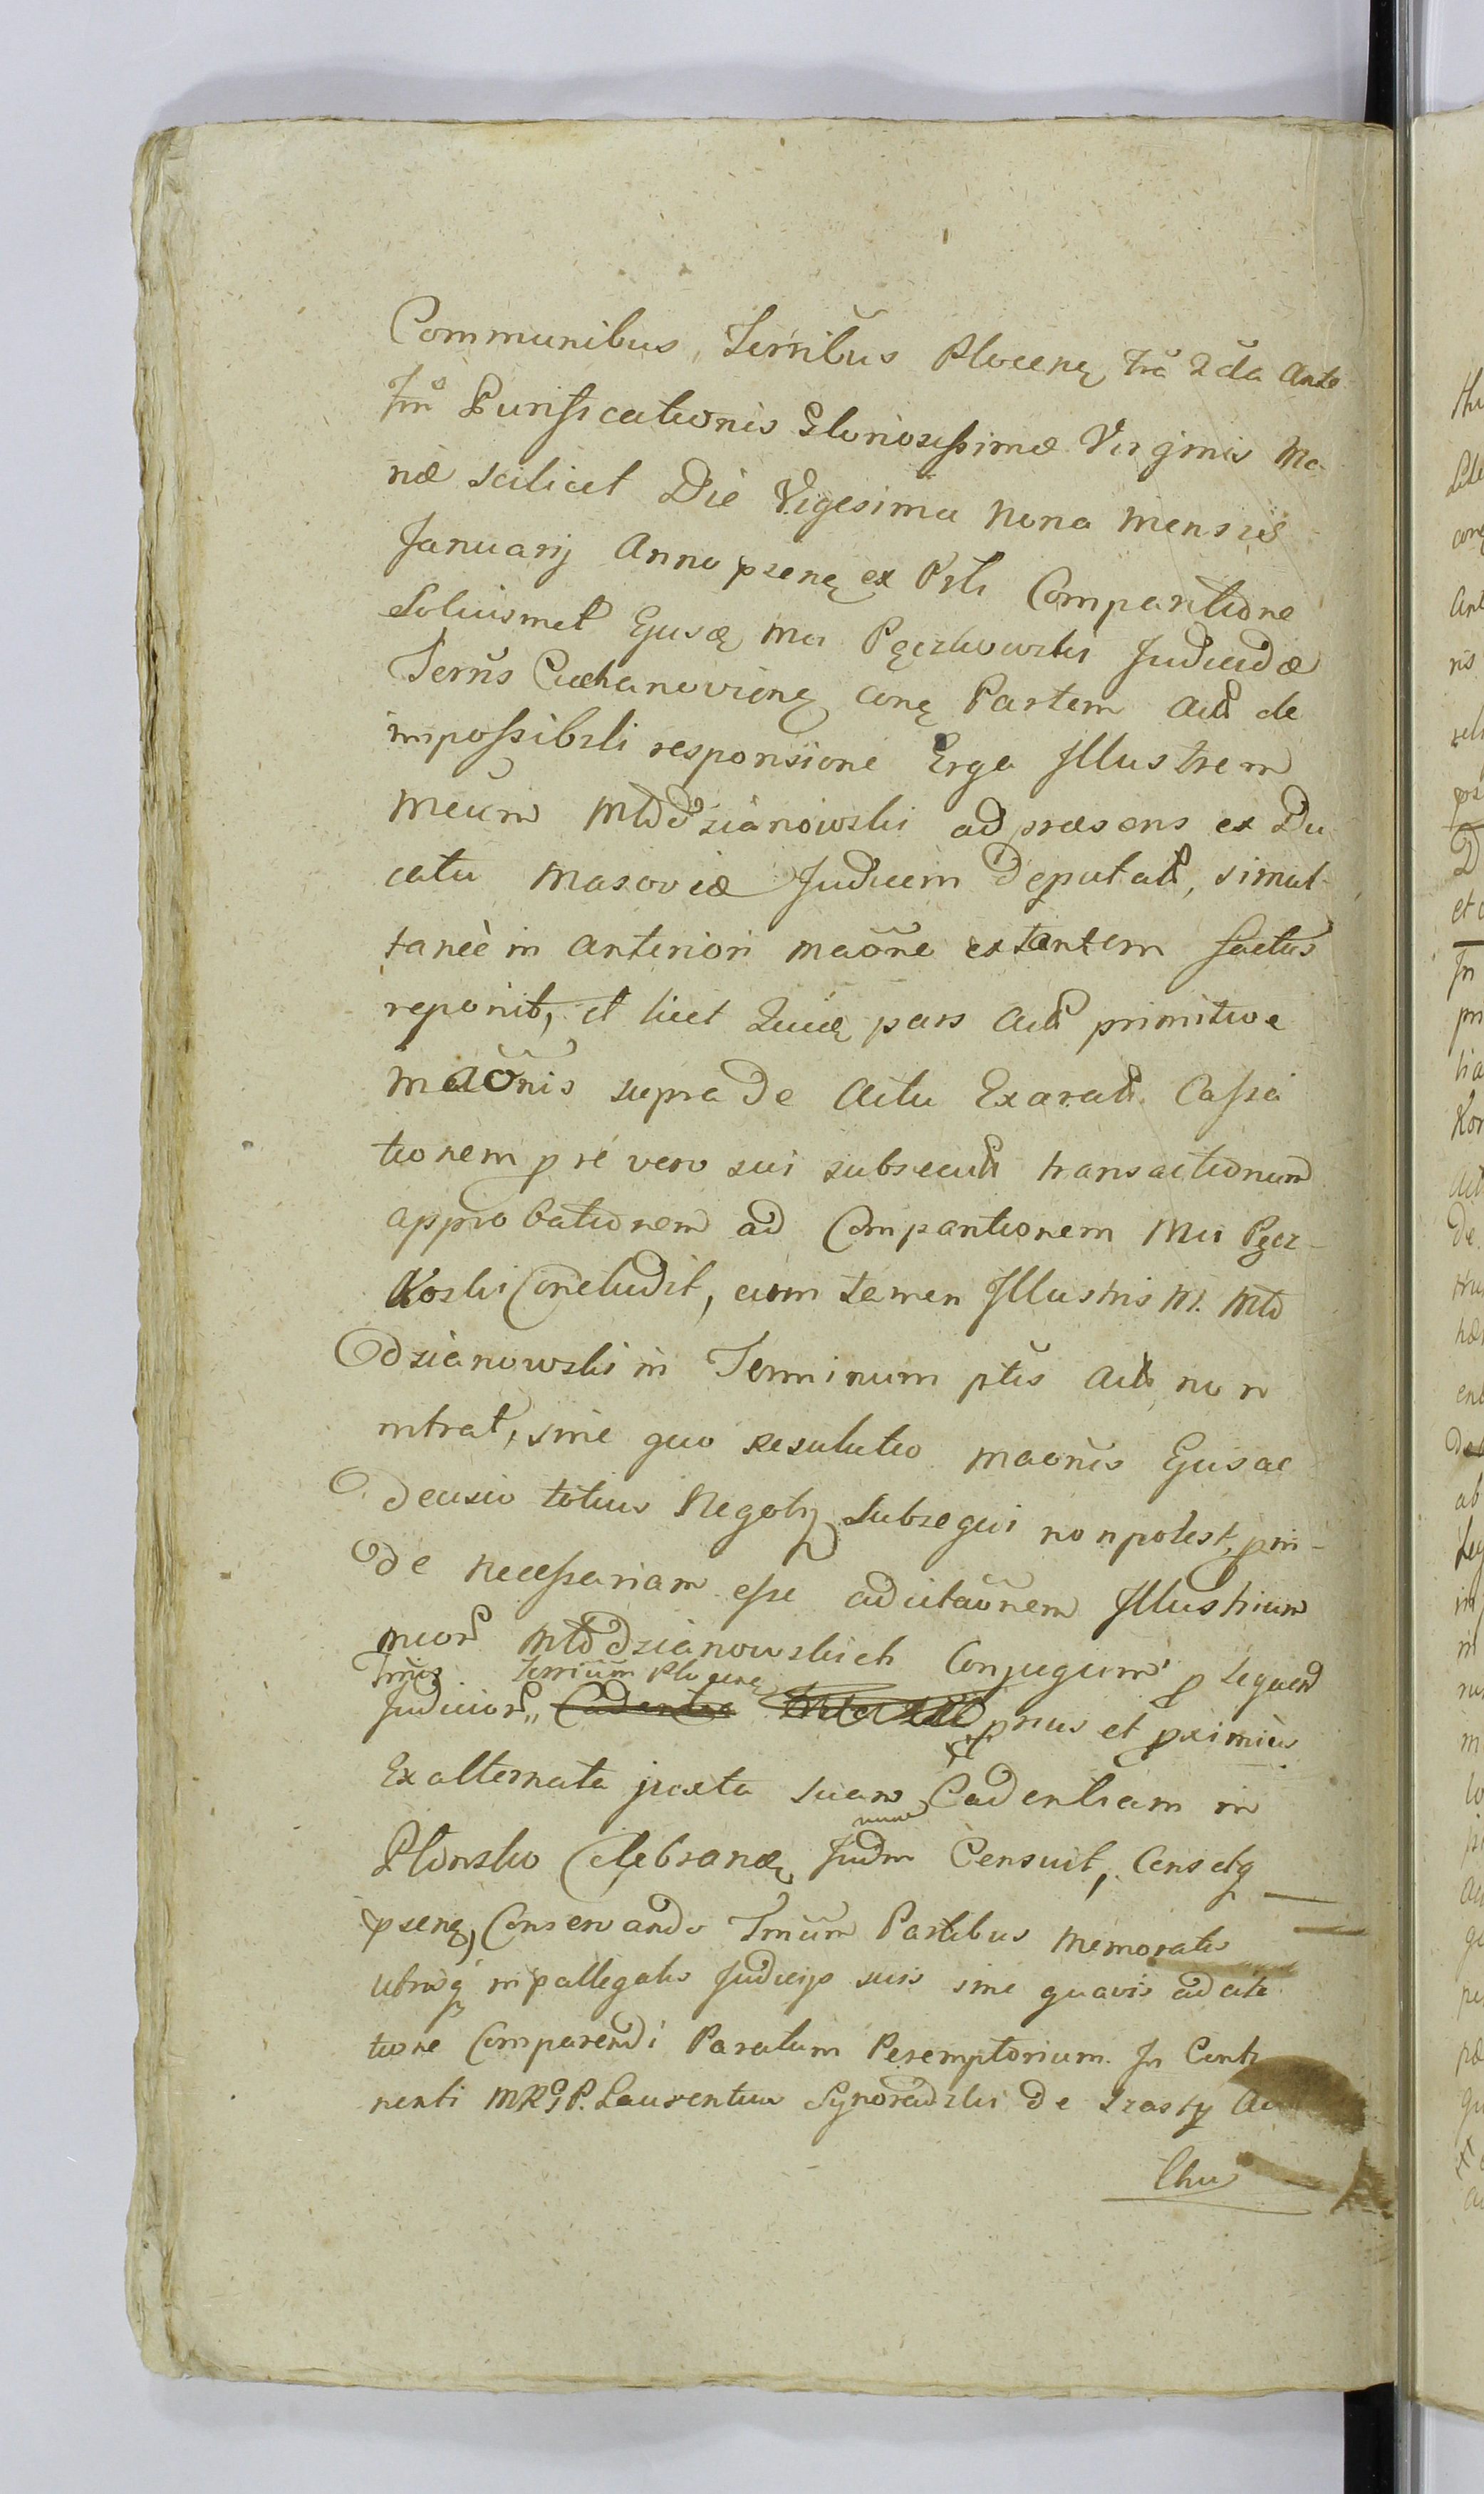 Communibus Terribus Plocenę fra 2da ante
fm Purificationis Gloriosissimæ Virginis Ma
riæ scilicet Die Vigesima Nona Mensis
Januarij Anno psenę ex Prti Comparitione
Soliusmet Ejusdę Mci Judicidæ
Terrïs Ciechanovienę conę Partem actt de
impossibili responsione Erga Illustrem
Meum Młodzianowski ad præsens ex Du
catu Masoviæ Judicem Deputatt, simul-
taneè in anteriori maõne extantem factus
reponit, et licet pars actt primitivæ
maõnis supra de actu Exaratt Cassa
tionem p re vero sui subsecutt transactionum
approbationem ad Comparitionem Mci Pęcz-
koski Concludit, cum tamen Illustris M. Mło
dzianowski in Terminum ptis actt non
intrat, sine quo resolutio maonis Ejusdę
decisio totius Negotÿ Subsequi non potest, proin-
de Necessariam esse adcitaõnem Illustrium
Mcor Młodzianowskich Conjugum p sequend
Tmos Terrium Plocenę
Judicior „ Cadentia prius et pximius
Exalternata juxta suam Cadentiam in
nunc
Płonsko Celebranę Judm Censuit, Censetq
psenę, Conservando Tmum Partibus Memoratis
Utrisq in pallegatis Judicijs suis sine quavis adcita
tione Comparendi Paratum Peremptorium. In Conti
nenti MRGP. Laurentius Synoradzki de